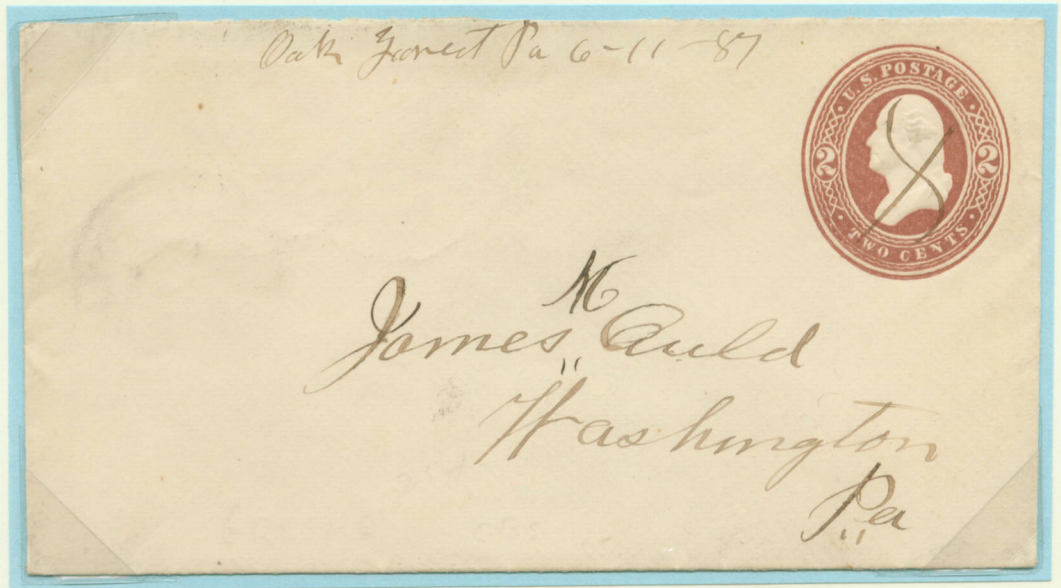 Oak Forest Pa 6-11-87
U.S. POSTAGE
2 2
TWO CENTS
M
James Auld
Washington
Pa